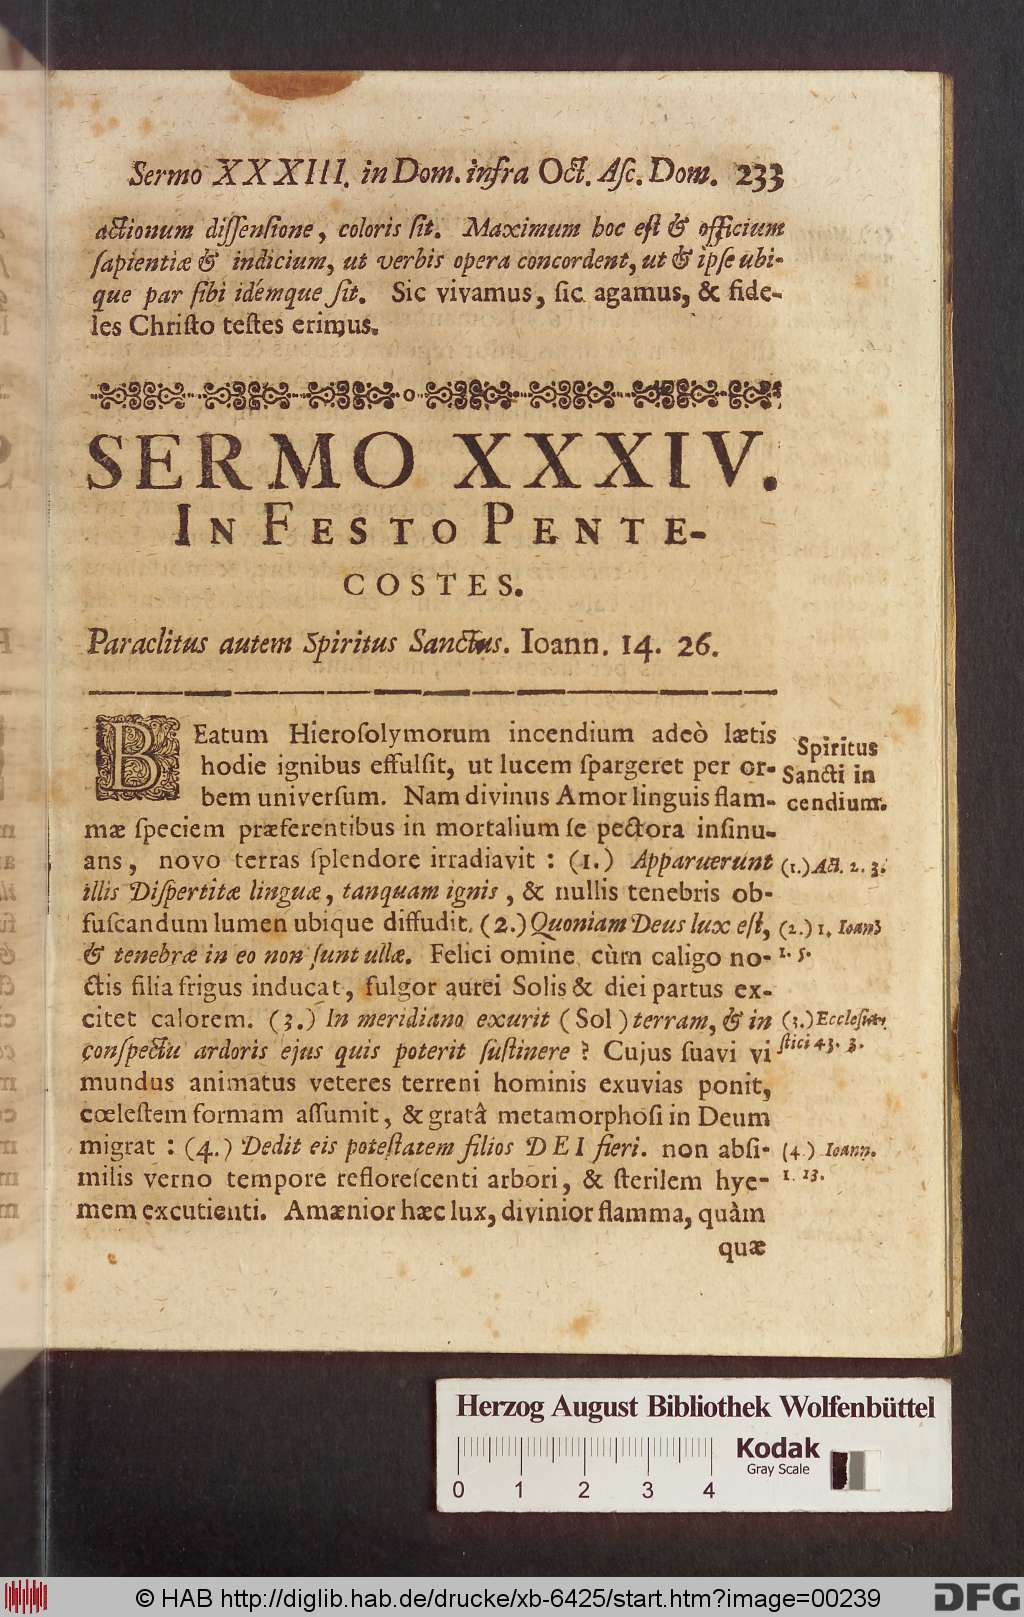 Sermo XXXIII. in Dom. infra Oct. Aſc. Dom. 233
actionum diſſenſione, coloris ſit. Maximum hoc eſt & officium
ſapientiæ & indicium, ut verbis opera concordent, ut & ipſe ubi-
que par ſibi idémque ſit. Sic vivamus, ſic agamus, & fide-
les Chriſto teſtes erimus.
SERMO XXXIV.
IN FESTO PENTE-
COSTES.
Paraclitus autem Spiritus Sanctus. Ioann. 14. 26.
BEatum Hieroſolymorum incendium adeò lætis
hodie ignibus effulſit, ut lucem ſpargeret per or-
bem univerſum. Nam divinus Amor linguis flam-
mæ ſpeciem præferentibus in mortalium ſe pectora inſinu-
ans, novo terras ſplendore irradiavit : (1.) Apparuerunt
illis Diſpertitæ linguæ, tanquam ignis, & nullis tenebris ob-
fuſcandum lumen ubique diffudit. (2.) Quoniam Deus lux eſt,
& tenebræ in eo non ſunt ullæ. Felici omine cùm caligo no-
ctis filia frigus inducat, fulgor aurei Solis & diei partus ex-
citet calorem. (3.) In meridiano exurit (Sol) terram, & in
conſpectu ardoris ejus quis poterit ſuſtinere ? Cujus ſuavi vi
mundus animatus veteres terreni hominis exuvias ponit,
cœleſtem formam aſſumit, & gratâ metamorphoſi in Deum
migrat : (4.) Dedit eis poteſtatem filios DEI fieri. non abſi-
milis verno tempore refloreſcenti arbori, & ſterilem hye-
mem excutienti. Amænior hæc lux, divinior flamma, quàm
quæ
Spiritus
Sancti in
cendium.
(1.) Act. 2. 3.
(2.) 1. Ioan3
1. 5.
(3.) Eccleſia-
ſtici 43. 3.
(4.) Ioann.
1. 13.
Herzog August Bibliothek Wolfenbüttel
Kodak
Gray Scale
0 1 2 3 4
© HAB http://diglib.hab.de/drucke/xb-6425/start.htm?image=00239
DFG